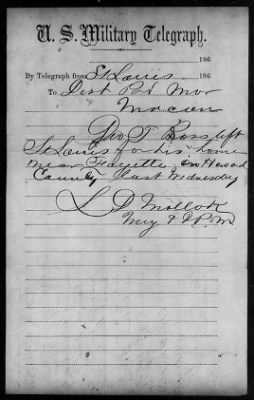 U. S. Military Telegraph.
186
By Telegraph from St Louis 186
To Dist Pro Mar
Macon
Geo T Boss left
St Louis for his home
near Fayette in Howard
County Last Wednesday
L D
Maj &